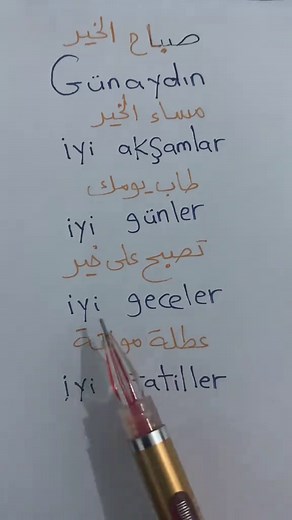 صباح الخير
Günaydın
مساء الخير
iyi akşamlar
طاب يومك
iyi günler
تصبح على خير
iyi geceler
عطلة
iyi